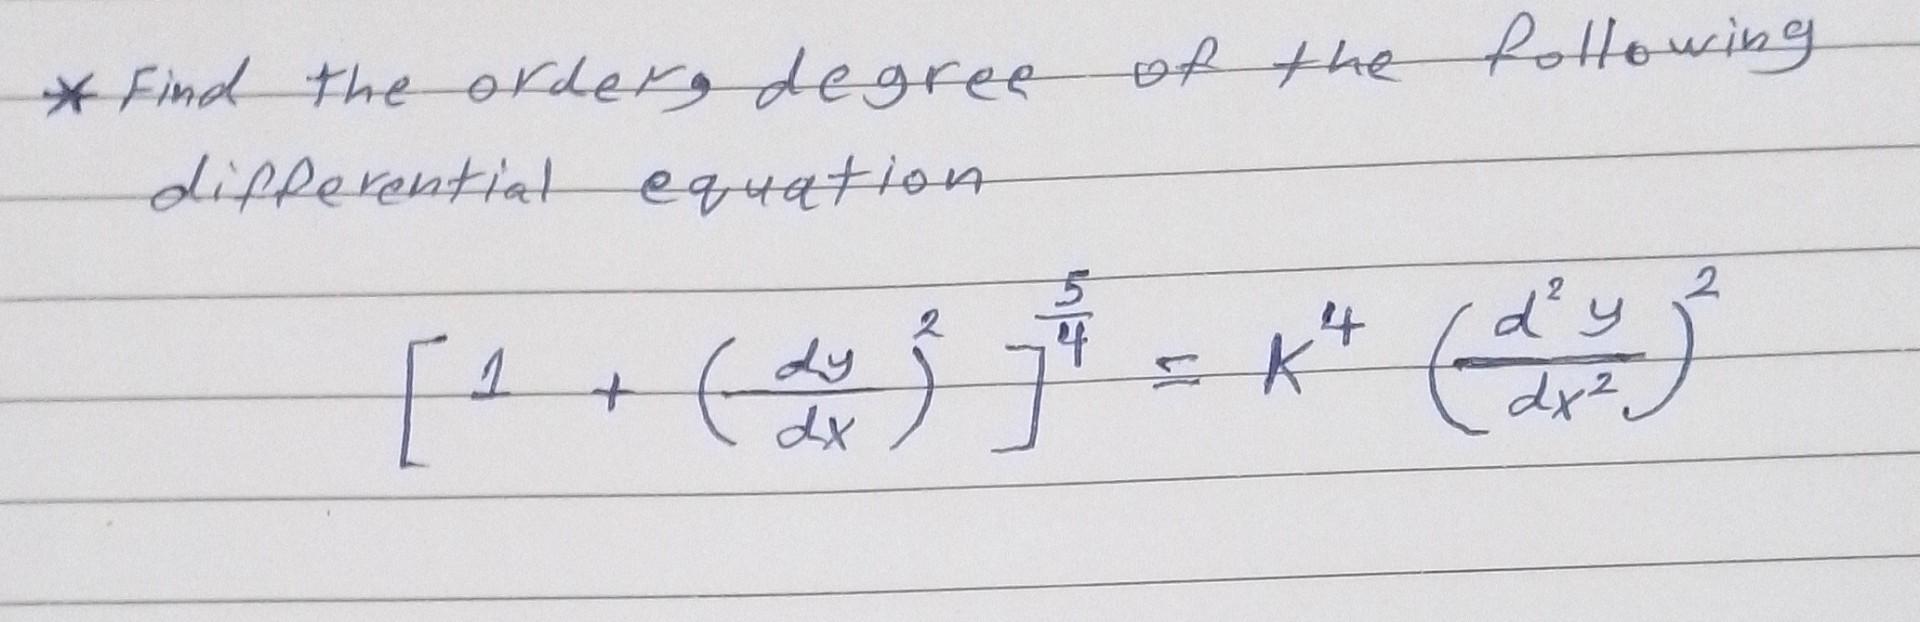 * Find the order & degree of the following
differential equation
[1 + (dy/dx)²]^(5/4) = K⁴ (d²y/dx²)²